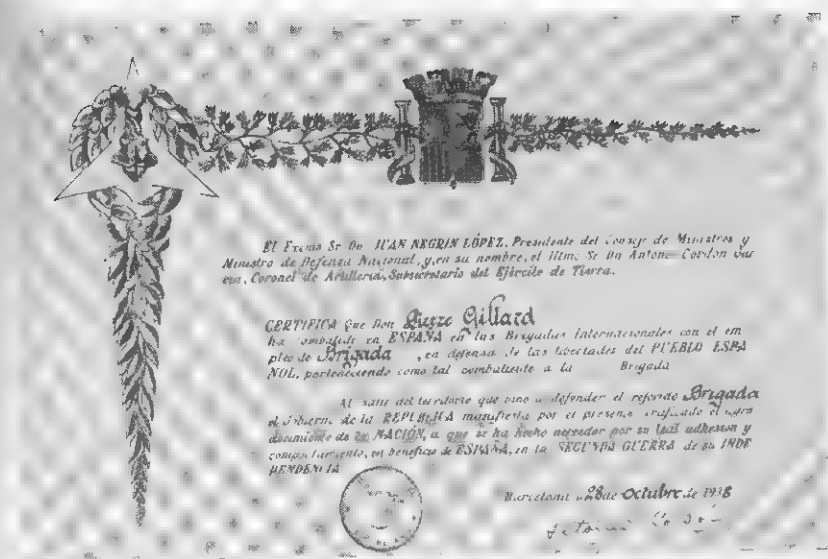 El Excmo Sr Dn JUAN NEGRIN LÓPEZ, Presidente del Consejo de Ministros y
Ministro de Defensa Nacional, y, en su nombre, el Iltmo Sr Dn Antonio Cordon Gar
cia, Coronel de Artilleria, Subsecretario del Ejército de Tierra.
CERTIFICA Que Don Pierre Gillard
ha combatido en ESPAÑA en las Brigadas Internacionales con el em
pleo de Brigada, en defensa de las libertades del PUEBLO ESPA
ÑOL, perteneciendo como tal combatiente a la Brigada
Al salir del territorio que vino a defender el referido Brigada
el Gobierno de la REPUBLICA manifiesta por el presente certificado el agra
decimiento de la NACIÓN, a que se ha hecho acreedor por su leal adhesion y
comportamiento, en beneficio de ESPAÑA, en la SEGUNDA GUERRA de su INDE
PENDENCIA
Barcelona a 28 de Octubre de 1938
Antonio Cordón